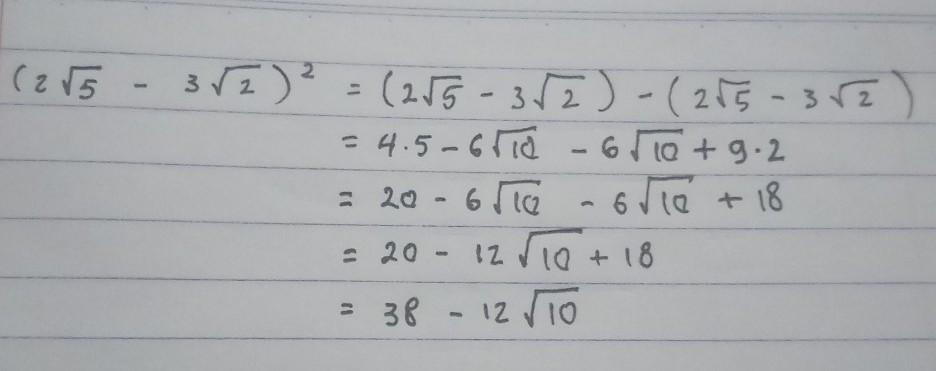 (2√5 - 3√2)² = (2√5 - 3√2) - (2√5 - 3√2)
= 4.5 - 6√10 - 6√10 + 9.2
= 20 - 6√10 - 6√10 + 18
= 20 - 12√10 + 18
= 38 - 12√10